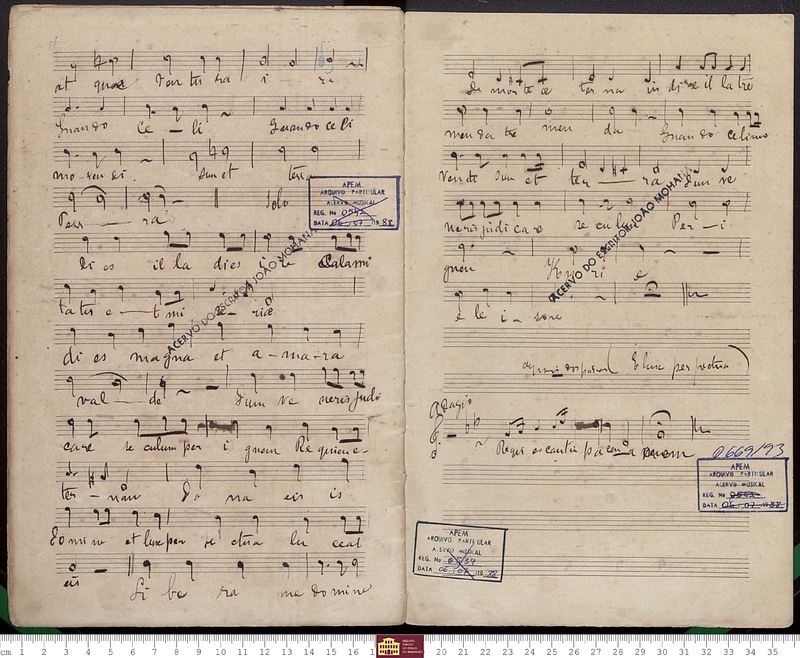 at quae ventura i - ra
Quando Ce - li Quando celi
mo-vendi. Sunt et teri
Terr - ra Solo
Di es il la dies i re Calami
ta tis e - t mi se - riæ
di es magna et a-ma-ra
val - de Dum ve neris judi
care se culum per i gnem Re quiem e-
ter - nam Do na eis is
Domine et lux per pe ctua lu ceat
eis Li be ra me domine
de morte æ ter na in di e il la tre
men da tre men da Quando celi mo
vendi sun et ter - ra Dum ve
neris judi care se culum Per - i
gnem Ki ri e
e le i - son
Et lux perpetua
Adagio
Requi escant in pace amen
0669/93
APEM
ARQUIVO PARTICULAR
ACERVO MUSICAL
REG. No 0542
DATA 06/07/1988
ACERVO DO ESCRITOR JOÃO MOHANA
ACERVO DO ESCRITOR JOÃO MOHANA
APEM
ARQUIVO PARTICULAR
ACERVO MUSICAL
REG. No
DATA 06/07/1988
APEM
ARQUIVO PARTICULAR
ACERVO MUSICAL
REG. No 0539
DATA 06/07/1988
cm 1 2 3 4 5 6 7 8 9 10 11 12 13 14 15 16 1 20 21 22 23 24 25 26 27 28 29 30 31 32 33 34 35